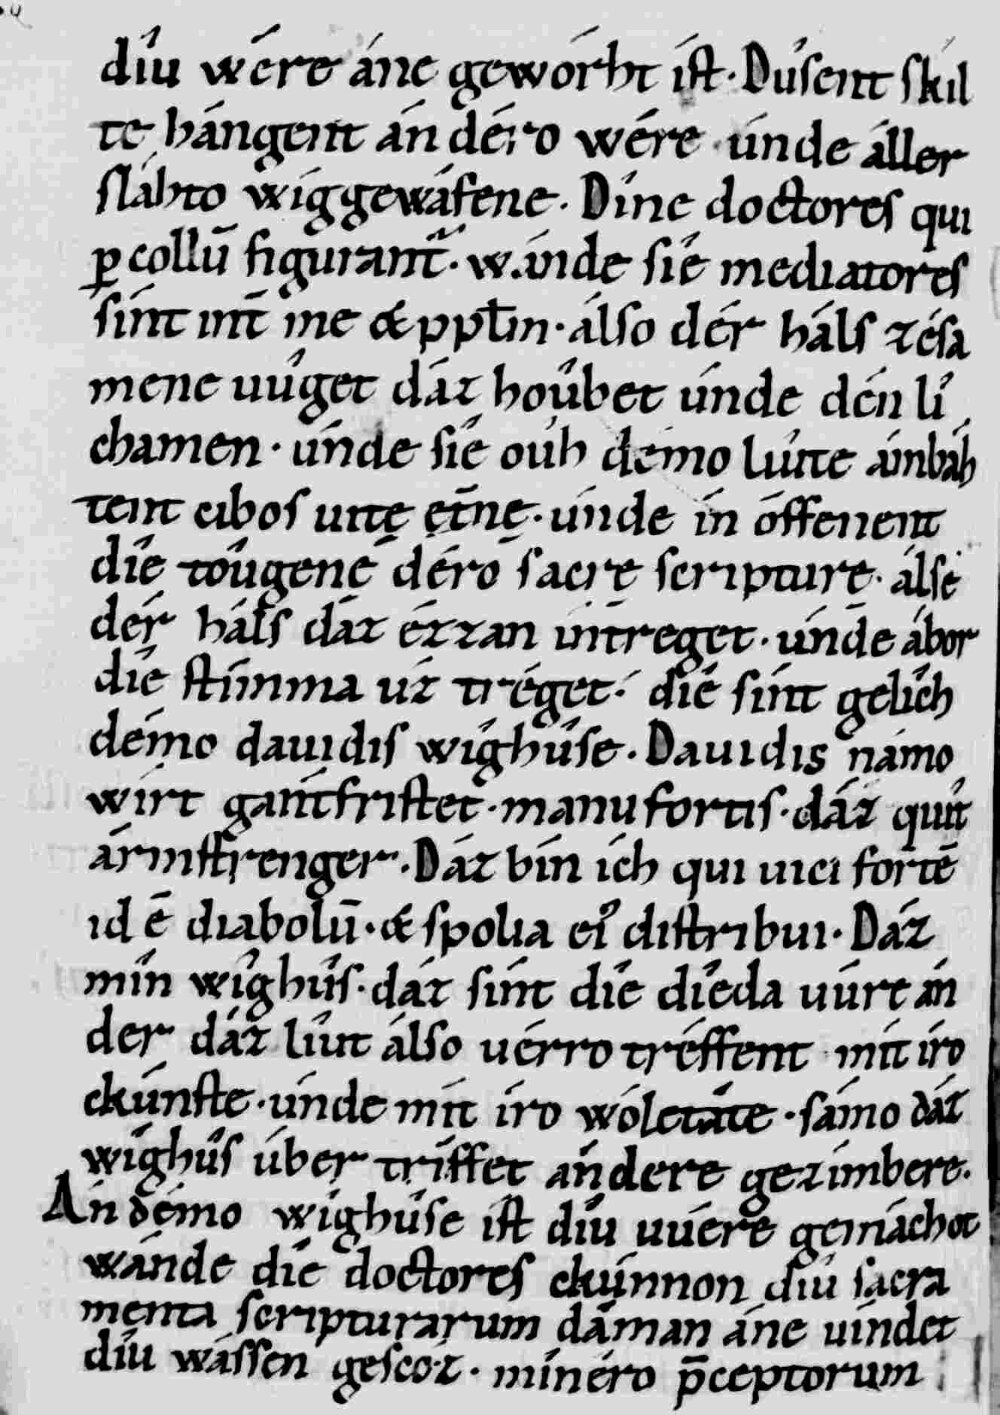 díu wére áne gewórht íst. Dûsent skíl
te hángent án déro wére. únde áller
sláhto wíggewáfene. Díne doctores qui
ꝑ collū figurant᷑. wánde síe mediatores
sínt int̄ me & ppl̄m. álso dér háls zésa
mene uûget dáz hoûbet únde dén lí
chamen. únde síe oúh démo lûte ámbáh
tent cibos uitę et̄nę. únde ín óffenent
díe toûgene déro sacrę scripturę. álse
dér háls dáz ézzan íntréget. únde ábor
díe stímma ûz tréget. díe sínt gelîch
démo dauidis wîghûse. Dauidis námo
wírt gántfristet. manu fortis. dáz quît
ármstrenger. Dáz bín ích qui uici fortē
id ē diabolū. & spolia eiꝰ distribui. Dáz
mín wîghûs. dáz sínt díe díeda uúre án
der dáz lîut álso uérro tréffent mít íro
ckúnste. únde mít íro wóletâte. sámo dáz
wîghûs úber tríffet ándere gezímbere.
An démo wîghûse íst díu uuére gemáchot
wánde díe doctores ckúnnon díu sacra
menta scripturarum dâ man áne uíndet
díu wássen gescóz. mínero p̄ceptorum